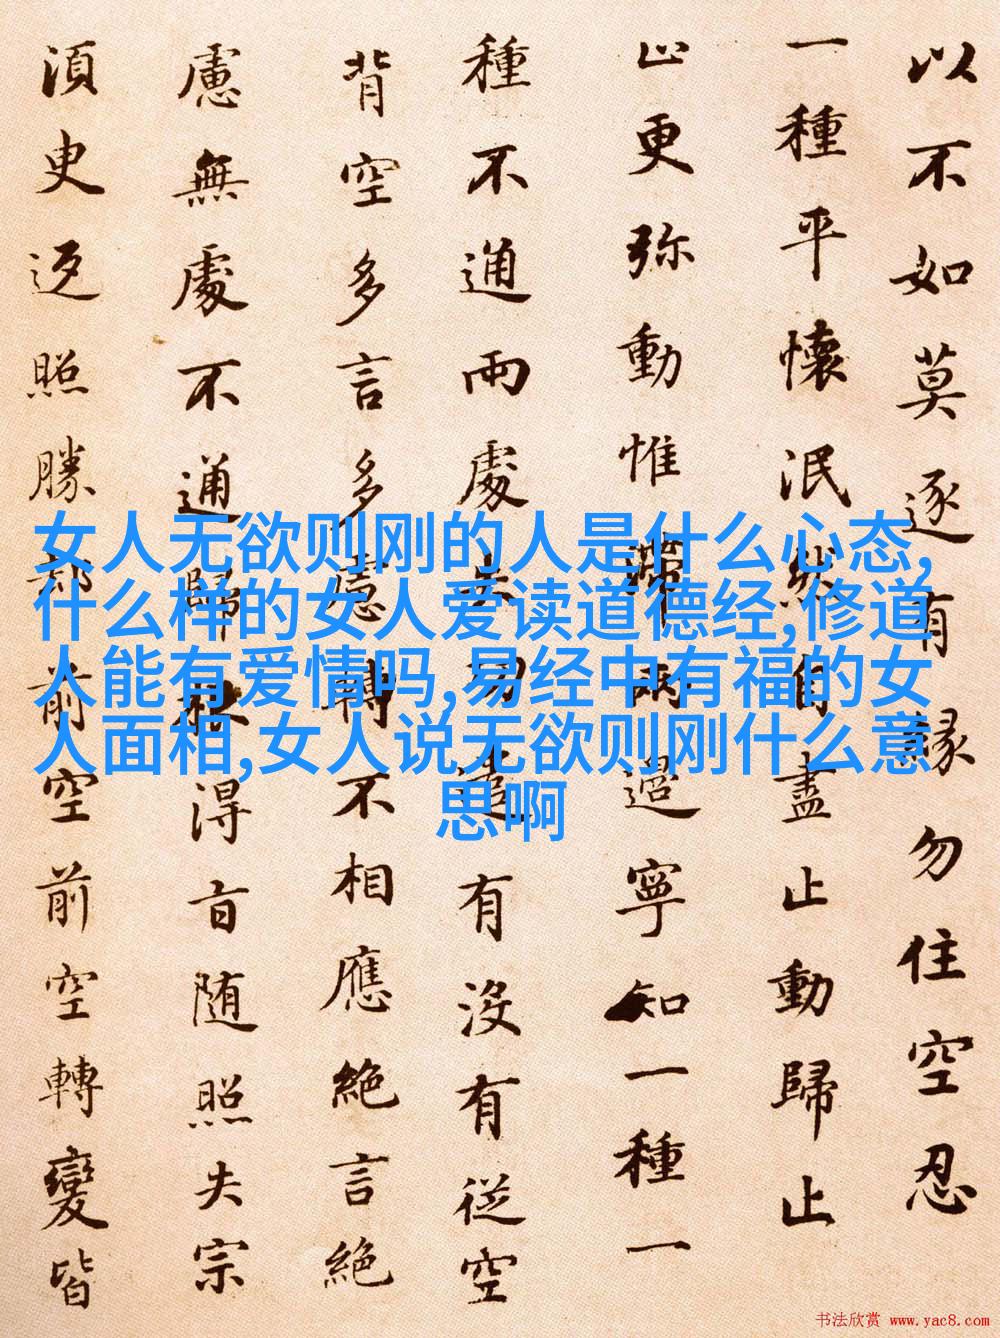 以不如莫逐有緣勿住空忍
一種平懷泯然自盡止動歸止
止更弥動惟滯兩邊寧知一種一
種不通兩處失功遣有没有従空
背空多言多慮轉不相應絕言絕
慮無處不通歸根得旨随照失宗
須臾返照勝却前空前空轉變皆
女人无欲则刚的人是什么心态,
什么样的女人爱读道德经,修道
人能有爱情吗,易经中有福的女
人面相,女人说无欲则刚什么意
思啊
书法欣赏 www.yac8.com